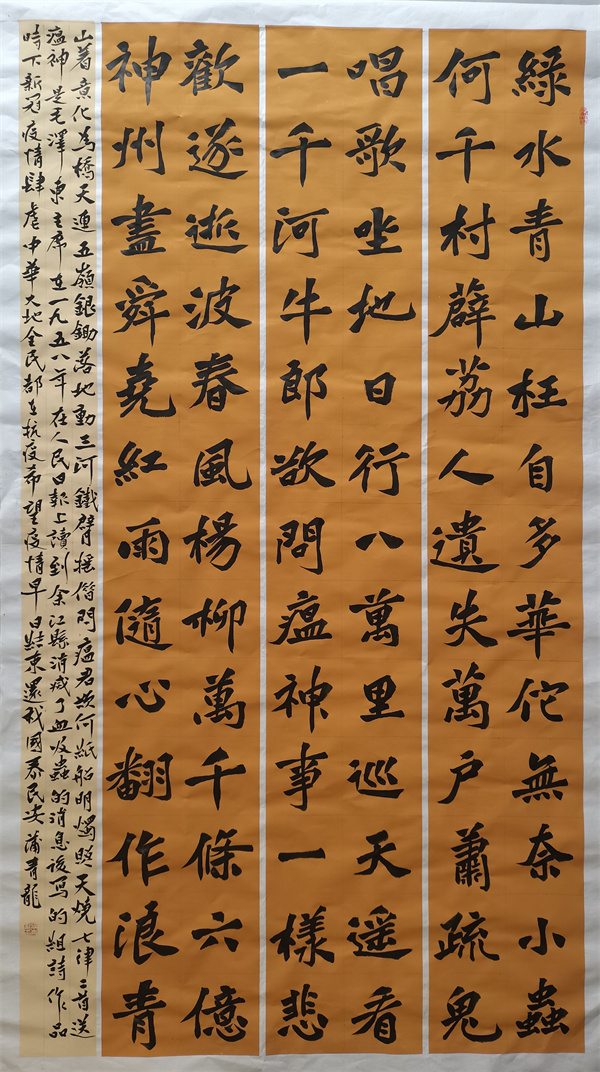 綠水青山枉自多華佗無奈小蟲
何千村薜荔人遺失萬戶蕭疏鬼
唱歌坐地日行八萬里巡天遥看
一千河牛郎欲問瘟神事一樣悲
歡逐逝波春風楊柳萬千條六億
神州盡舜堯紅雨隨心翻作浪青
山着意化為橋天連五嶺銀鋤落地動三河鐵臂摇借問瘟君欲何紙船明燭照天燒七律二首送
瘟神是毛澤東主席在一九五八年在人民日報上讀到余江縣消滅了血吸蟲的消息後寫的組詩作品
時下新冠疫情肆虐中華大地全民都在抗疫希望疫情早日結束還我國泰民安蒲青龍